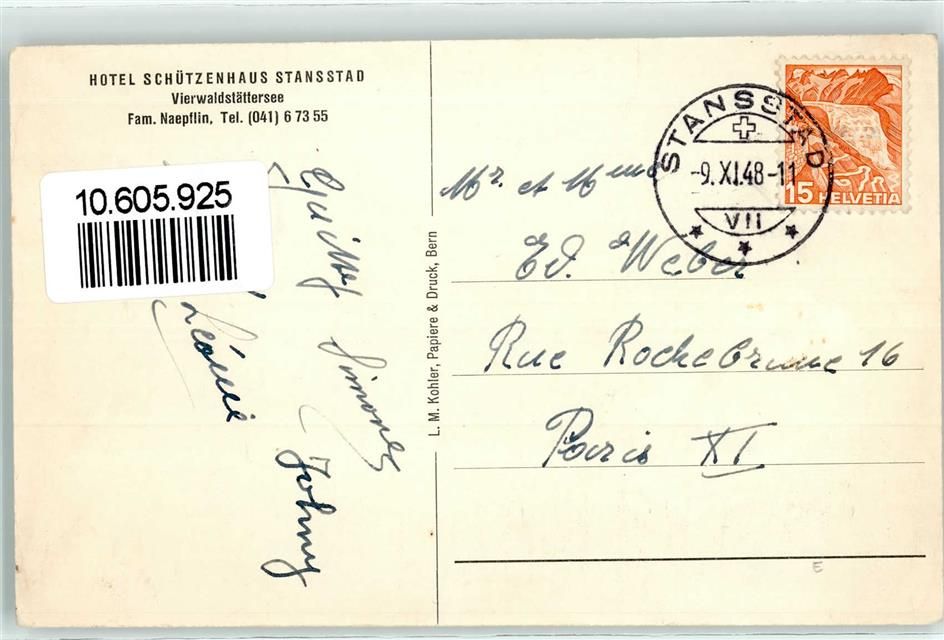 HOTEL SCHÜTZENHAUS STANSSTAD
Vierwaldstättersee
Fam. Naepflin, Tel. (041) 6 73 55
10.605.925
Simones
Johnny
Léonie
L. M. Kohler, Papiere & Druck, Bern
STANSSTAD
-9.XI.48-11
VII
15 HELVETIA
Mr. et Mme
Ed. Weber
Rue Rochebrune 16
Paris XI
E